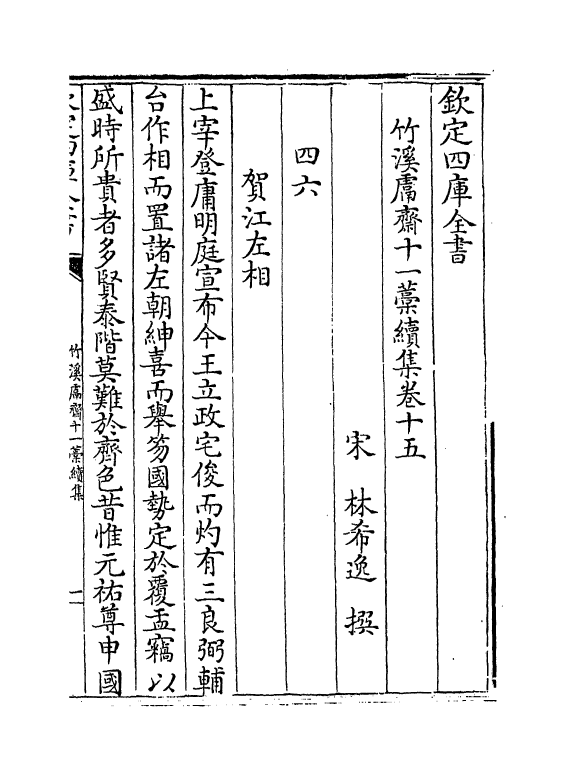 欽定四庫全書
竹溪鬳齋十一藳續集卷十五
宋 林希逸 撰
四六
賀江左相
上宰登庸明庭宣布今王立政宅俊而灼有三良弼輔
台作相而置諸左朝紳喜而舉笏國勢定於覆盂竊以
盛時所貴者多賢泰階莫難於齊色昔惟元祐尊申國
欽定四庫全書
竹溪鬳齋十一藳續集
一